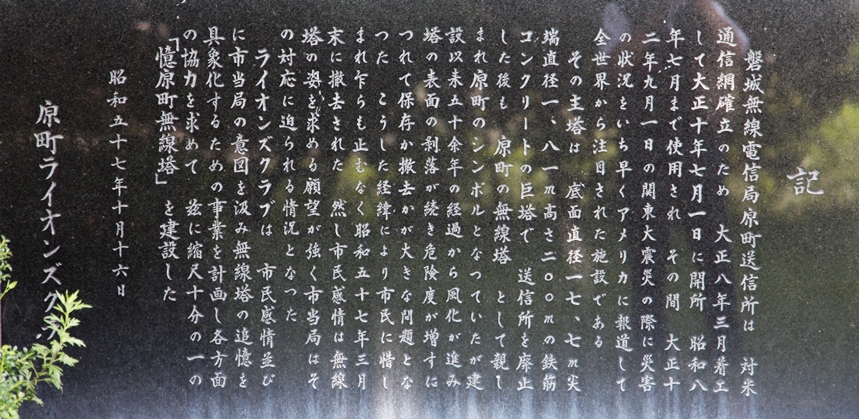 記
磐城無線電信局原町送信所は 対米
通信網確立のため 大正八年三月着工
して大正十年七月一日に開所 昭和八
年七月まで使用され その間 大正十
二年九月一日の関東大震災の際に災害
の状況をいち早くアメリカに報道して
全世界から注目された施設である
その主塔は 底面直径一七、七m尖
端直径一、八一m高さ二〇〇mの鉄筋
コンクリートの巨塔で 送信所を廃止
した後も 原町の無線塔 として親し
まれ原町のシンボルとなっていたが建
設以来五十余年の経過から風化が進み
塔の表面の剥落が続き危険度が増すに
つれて保存か撤去かが大きな問題とな
つた こうした経緯により市民に惜し
まれ乍らも止むなく昭和五十七年三月
末に撤去された 然し市民感情は無線
塔の姿を求める願望が強く市当局はそ
の対応に迫られる情況となった
ライオンズクラブは 市民感情並び
に市当局の意図を汲み無線塔の追憶を
具象化するための事業を計画し各方面
の協力を求めて 茲に縮尺十分の一の
「憶原町無線塔」 を建設した
昭和五十七年十月十六日
原町ライオンズクラ